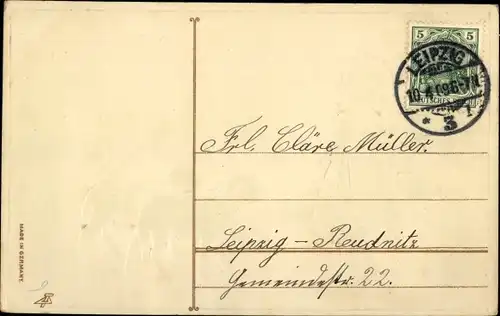 5 5
LEIPZIG
10.4.09.6-7N
* 3 1.
Frl. Cläre Müller.
Leipzig – Reudnitz
Gemeindestr. 22.
MADE IN GERMANY.